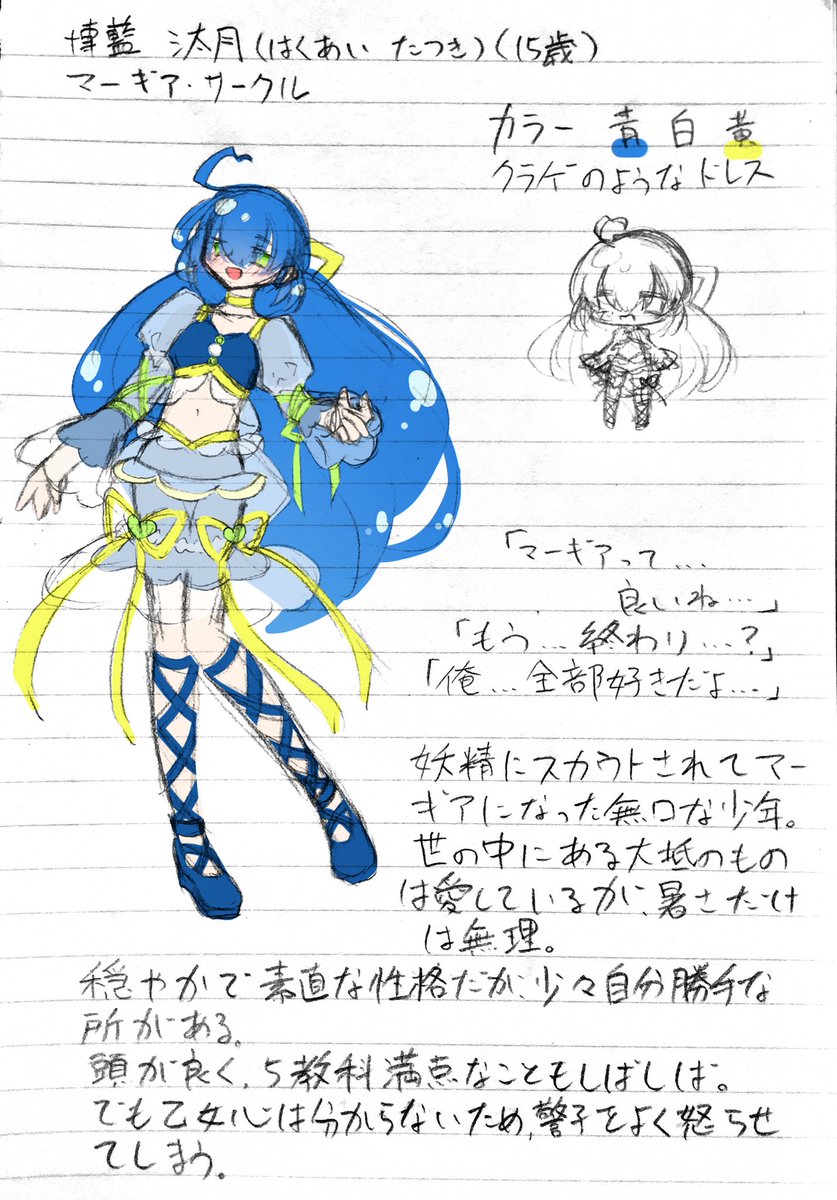 博藍 汰月(はくあい たつき)(15歳)
マーギア・サークル
カラー 青 白 黄
クラゲのようなドレス
「マーギアって…
良いね…」
「もう…終わり…?」
「俺…全部好きだよ…」
妖精にスカウトされてマー
ギアになった無口な少年。
世の中にある大抵のもの
は愛しているが、暑さだけ
は無理。
穏やかで素直な性格だが、少々自分勝手な
所がある。
頭が良く、5教科満点なこともしばしば。
でも乙女心は分からないため、警子をよく怒らせ
てしまう。